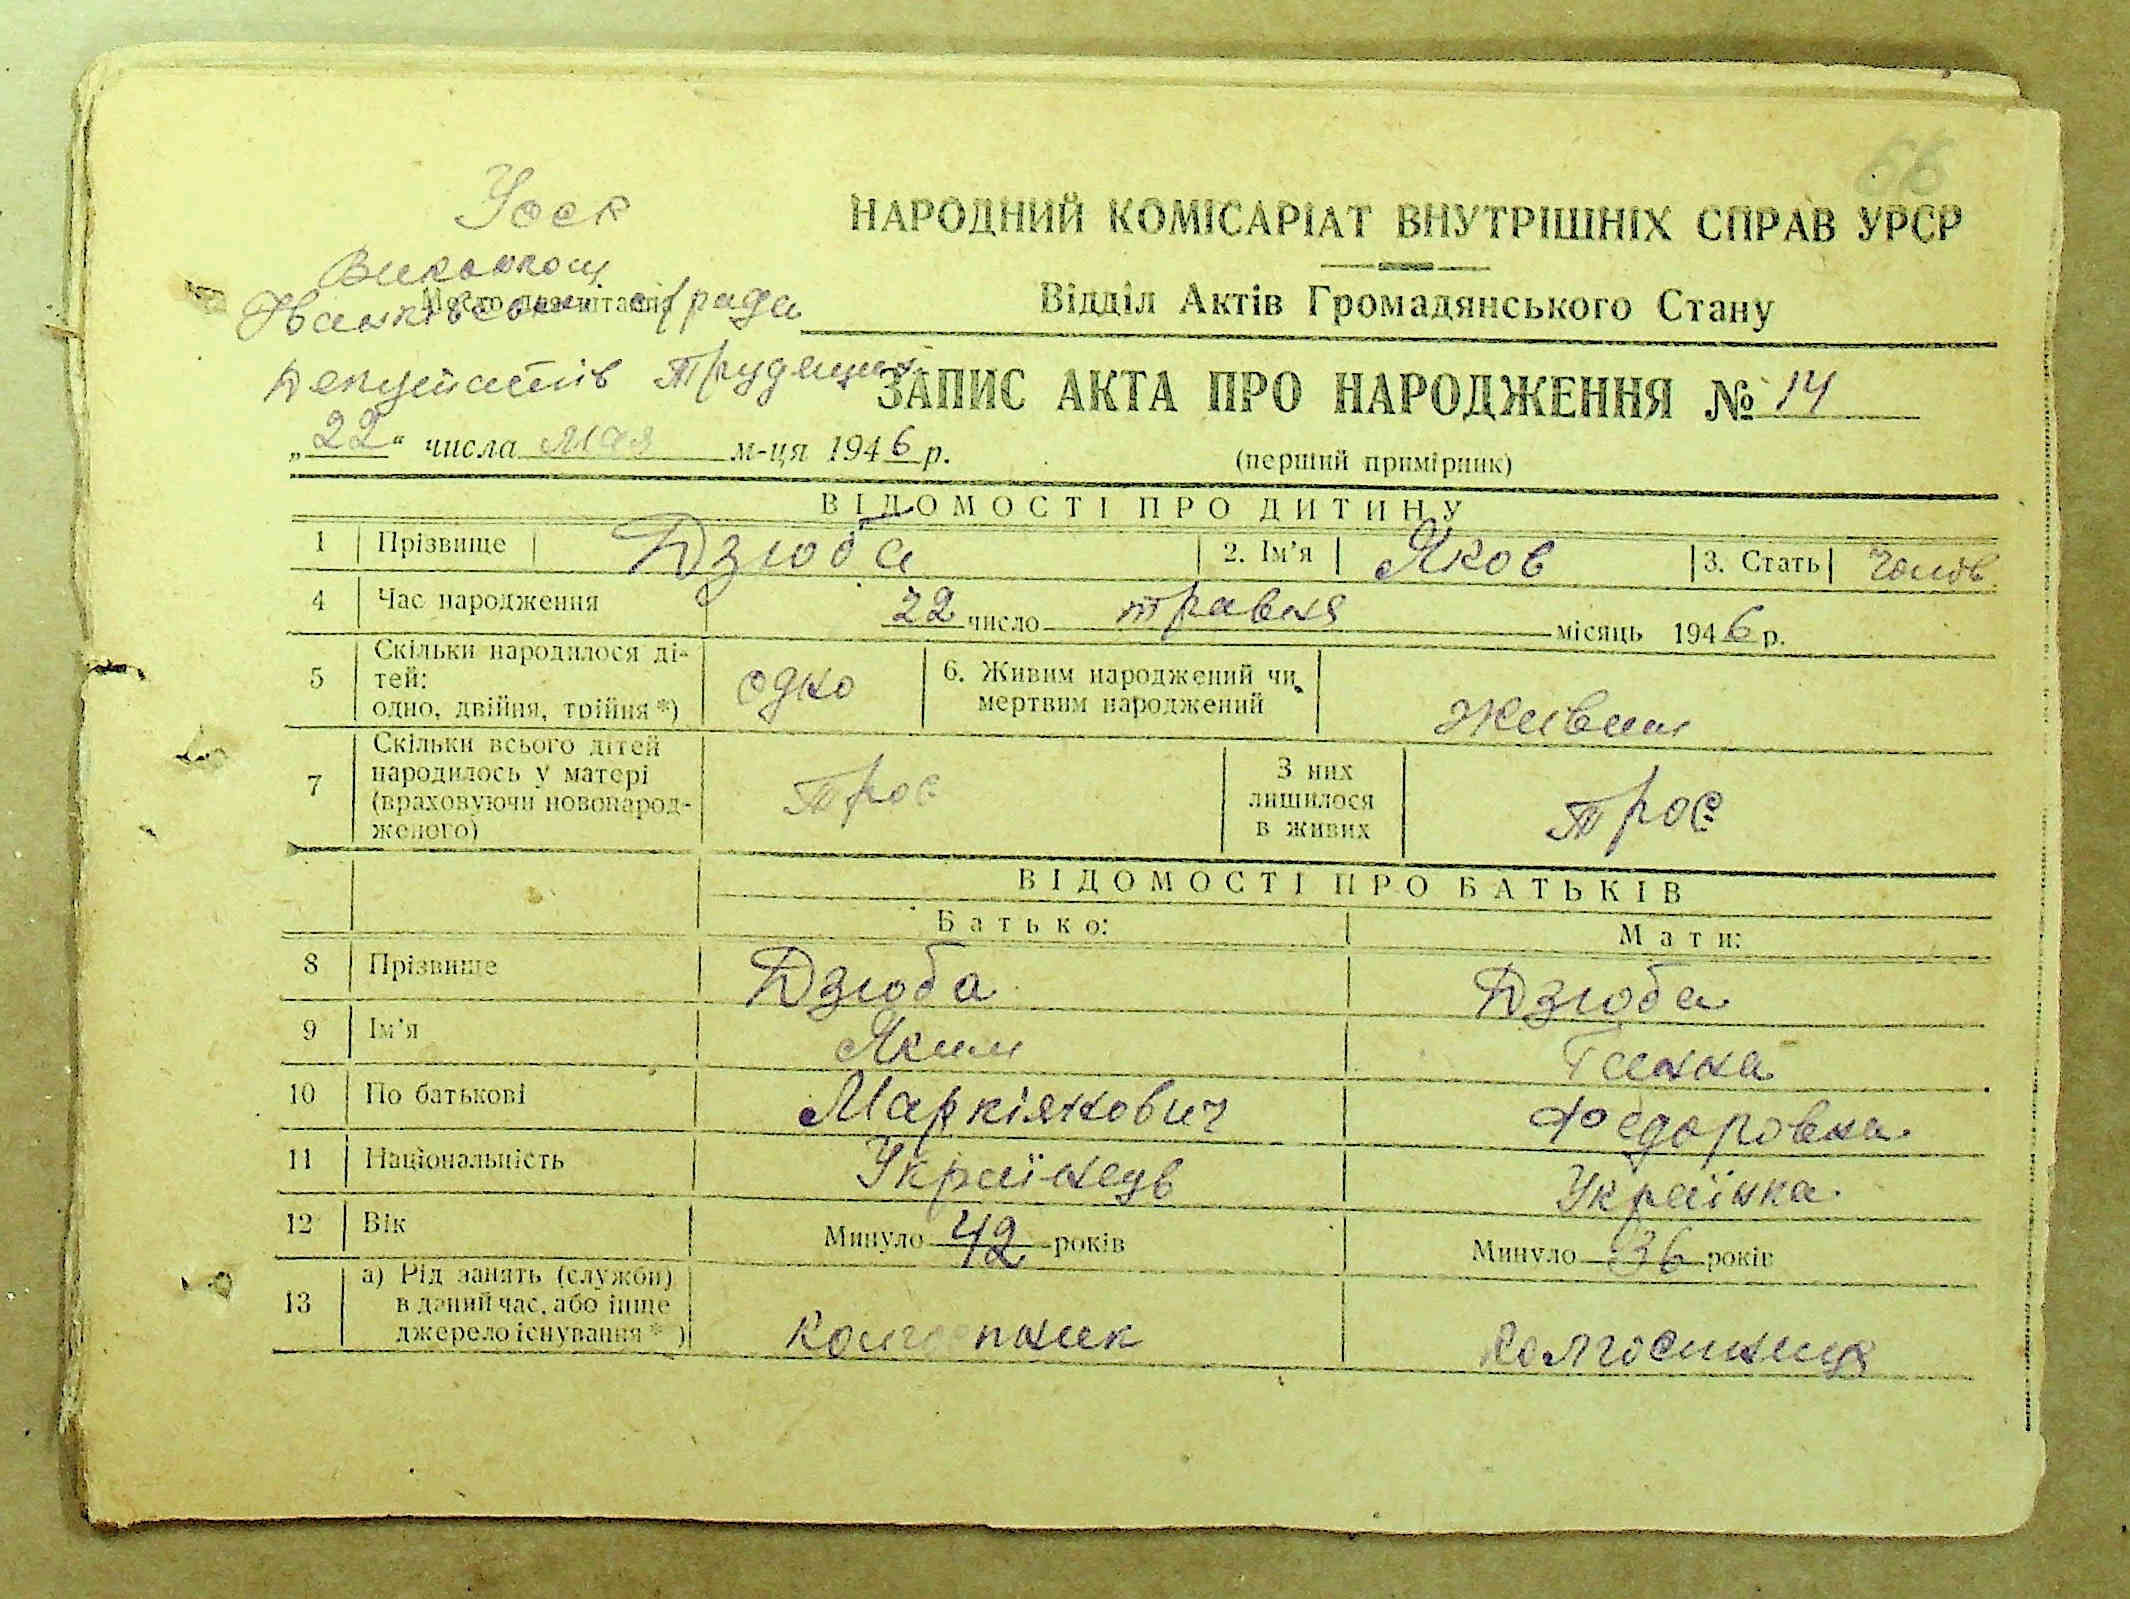 66
НАРОДНИЙ КОМІСАРІАТ ВНУТРІШНІХ СПРАВ УРСР
Відділ Актів Громадянського Стану
Виконком
с/рада
Депутатів Трудящих
ЗАПИС АКТА ПРО НАРОДЖЕННЯ № 14
„22“ числа мая м-ця 1946 р.
(перший примірник)
ВІДОМОСТІ ПРО ДИТИНУ
1 Прізвище Дзюба 2. Ім'я Яков 3. Стать Чолов
4 Час народження 22 число травня місяць 1946 р.
5 Скільки народилося ді-
тей:
одно, двійня, трійня *) одно
6. Живим народжений чи
мертвим народжений живим
7 Скільки всього дітей
народилось у матері
(враховуючи новонарод-
женого) троє
З них
лишилося
в живих троє
ВІДОМОСТІ ПРО БАТЬКІВ
Батько: Мати:
8 Прізвище Дзюба Дзюба
9 Ім'я Яким Ганна
10 По батькові Маркіянович Федоровна
11 Національність Українець Українка
12 Вік Минуло 42 років Минуло 36 років
13 а) Рід занять (служби)
в даний час, або інше
джерело існування *) колгоспник колгоспниця